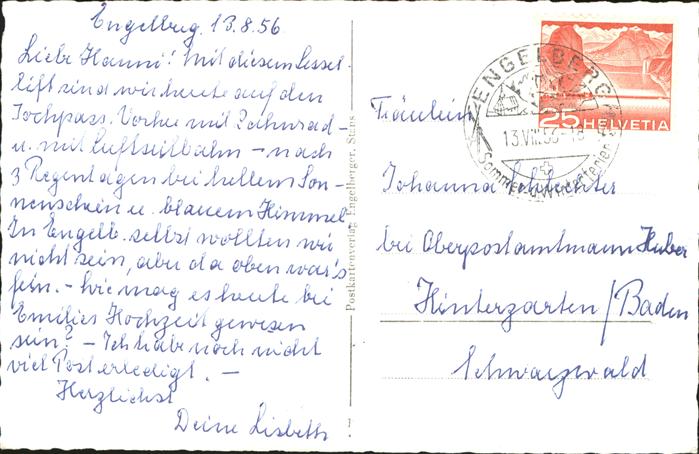 Engelbrg. 13.8.56.
Liebe Hanni! Mit diesem Sessel-
lift sind wir heute auf den
Jochpass. Vorher mit Zahnrad-
u. mit Luftseilbahn – nach
3 Regentagen bei hellem Son-
nenschein u. blauem Himmel
In Engelb. selbst wollten wir
nicht sein, aber da oben war's
fein. – Wie mag es heute bei
Emilies Hochzeit gewesen
sein? – Ich habe noch nicht
viel Post erledigt. –
Herzlichst
Deine Lisbeth
Postkartenverlag Engelberger, Stans
ENGELBERG
13.VIII.56-18
Sommer u. Winterferien
25 HELVETIA
Fräulein
Johanna
bei Oberpostamtmann Huber
Hinterzarten/Baden
Schwarzwald